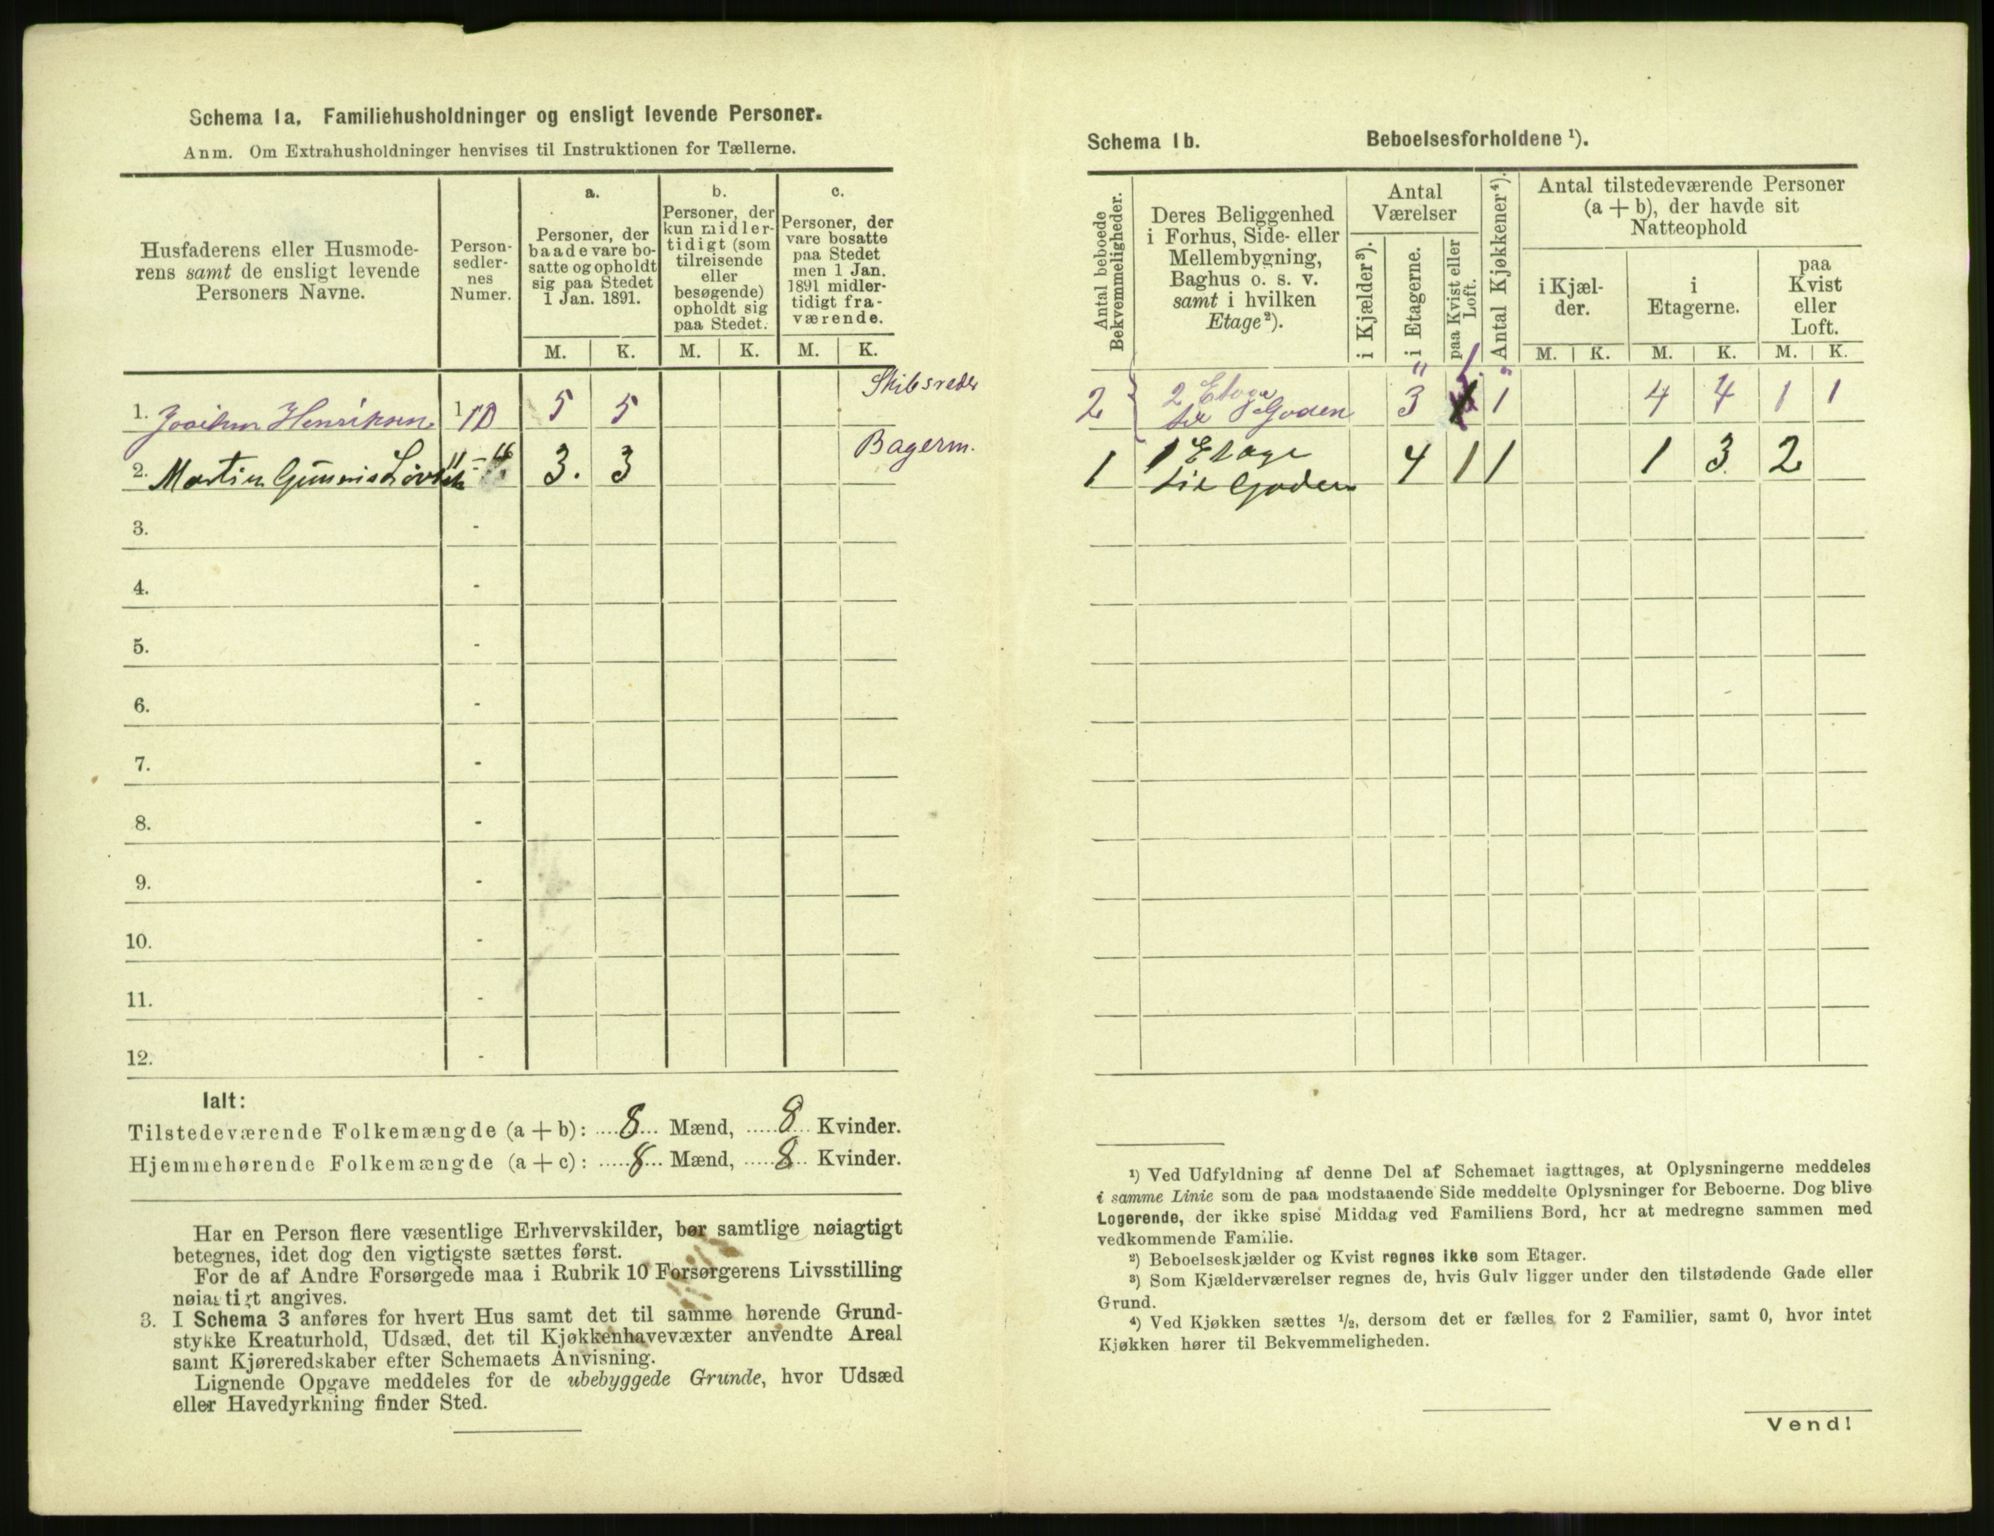 Schema 1a. Familiehusholdninger og ensligt levende Personer.
Anm. Om Extrahusholdninger henvises til Instruktionen for Tællerne.
Husfaderens eller Husmode-
rens samt de ensligt levende
Personers Navne.
Person-
sedler-
nes
Numer.
a.
Personer, der
baade vare bo-
satte og opholdt
sig paa Stedet
1 Jan. 1891.
b.
Personer, der
kun midler-
tidigt (som
tilreisende
eller
besøgende)
opholdt sig
paa Stedet.
c.
Personer, der
vare bosatte
paa Stedet
men 1 Jan.
1891 midler-
tidigt fra-
værende.
M. K. M. K. M. K.
Skibsreder
1. Joachim Henriksen 1 10 5 5
Bagerm.
2. Martin 11 - 16 3. 3
3. -
4. -
5. -
6. -
7. -
8. -
9. -
10. -
11. -
12. -
Ialt:
Tilstedeværende Folkemængde (a + b): 8 Mænd, 8 Kvinder.
Hjemmehørende Folkemængde (a + c): 8 Mænd, 8 Kvinder.
Har en Person flere væsentlige Erhvervskilder, bør samtlige nøiagtigt
betegnes, idet dog den vigtigste sættes først.
For de af Andre Forsørgede maa i Rubrik 10 Forsørgerens Livsstilling
nøiagtigt angives.
3. I Schema 3 anføres for hvert Hus samt det til samme hørende Grund-
stykke Kreaturhold, Udsæd, det til Kjøkkenhavevæxter anvendte Areal
samt Kjøreredskaber efter Schemaets Anvisning.
Lignende Opgave meddeles for de ubebyggede Grunde, hvor Udsæd
eller Havedyrkning finder Sted.
Schema 1b. Beboelsesforholdene ¹).
Antal beboede
Bekvemmeligheder.
Deres Beliggenhed
i Forhus, Side- eller
Mellembygning,
Baghus o. s. v.
samt i hvilken
Etage²).
Antal
Værelser
i Kjælder³).
i Etagerne.
paa Kvist eller
Loft.
Antal Kjøkkener⁴).
Antal tilstedeværende Personer
(a + b), der havde sit
Natteophold
i Kjæl-
der.
i
Etagerne.
paa
Kvist
eller
Loft.
M. K. M. K. M. K.
2 2 Etage
til Gaden 3 1 1 4 4 1 1
1 1 Etage
til Gaden 4 1 1 1 3 2
¹) Ved Udfyldning af denne Del af Schemaet iagttages, at Oplysningerne meddeles
i samme Linie som de paa modstaaende Side meddelte Oplysninger for Beboerne. Dog blive
Logerende, der ikke spise Middag ved Familiens Bord, her at medregne sammen med
vedkommende Familie.
²) Beboelseskjælder og Kvist regnes ikke som Etager.
³) Som Kjælderværelser regnes de, hvis Gulv ligger under den tilstødende Gade eller
Grund.
⁴) Ved Kjøkken sættes ½, dersom det er fælles for 2 Familier, samt 0, hvor intet
Kjøkken hører til Bekvemmeligheden.
Vend!